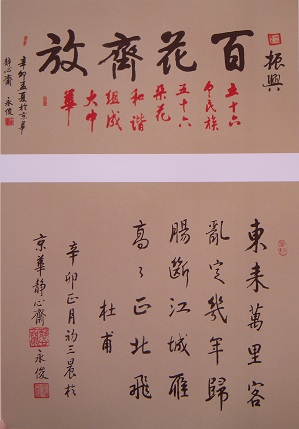 振興
百花齊放
五十六
个民族
五十六
朵花
和谐
组成
大中
華
辛卯孟夏於京華
静心齋 永俊
東来萬里客
亂定幾年歸
腸斷江城雁
高々正北飛
杜甫
辛卯正月初三晨於
京華静心齋 永俊